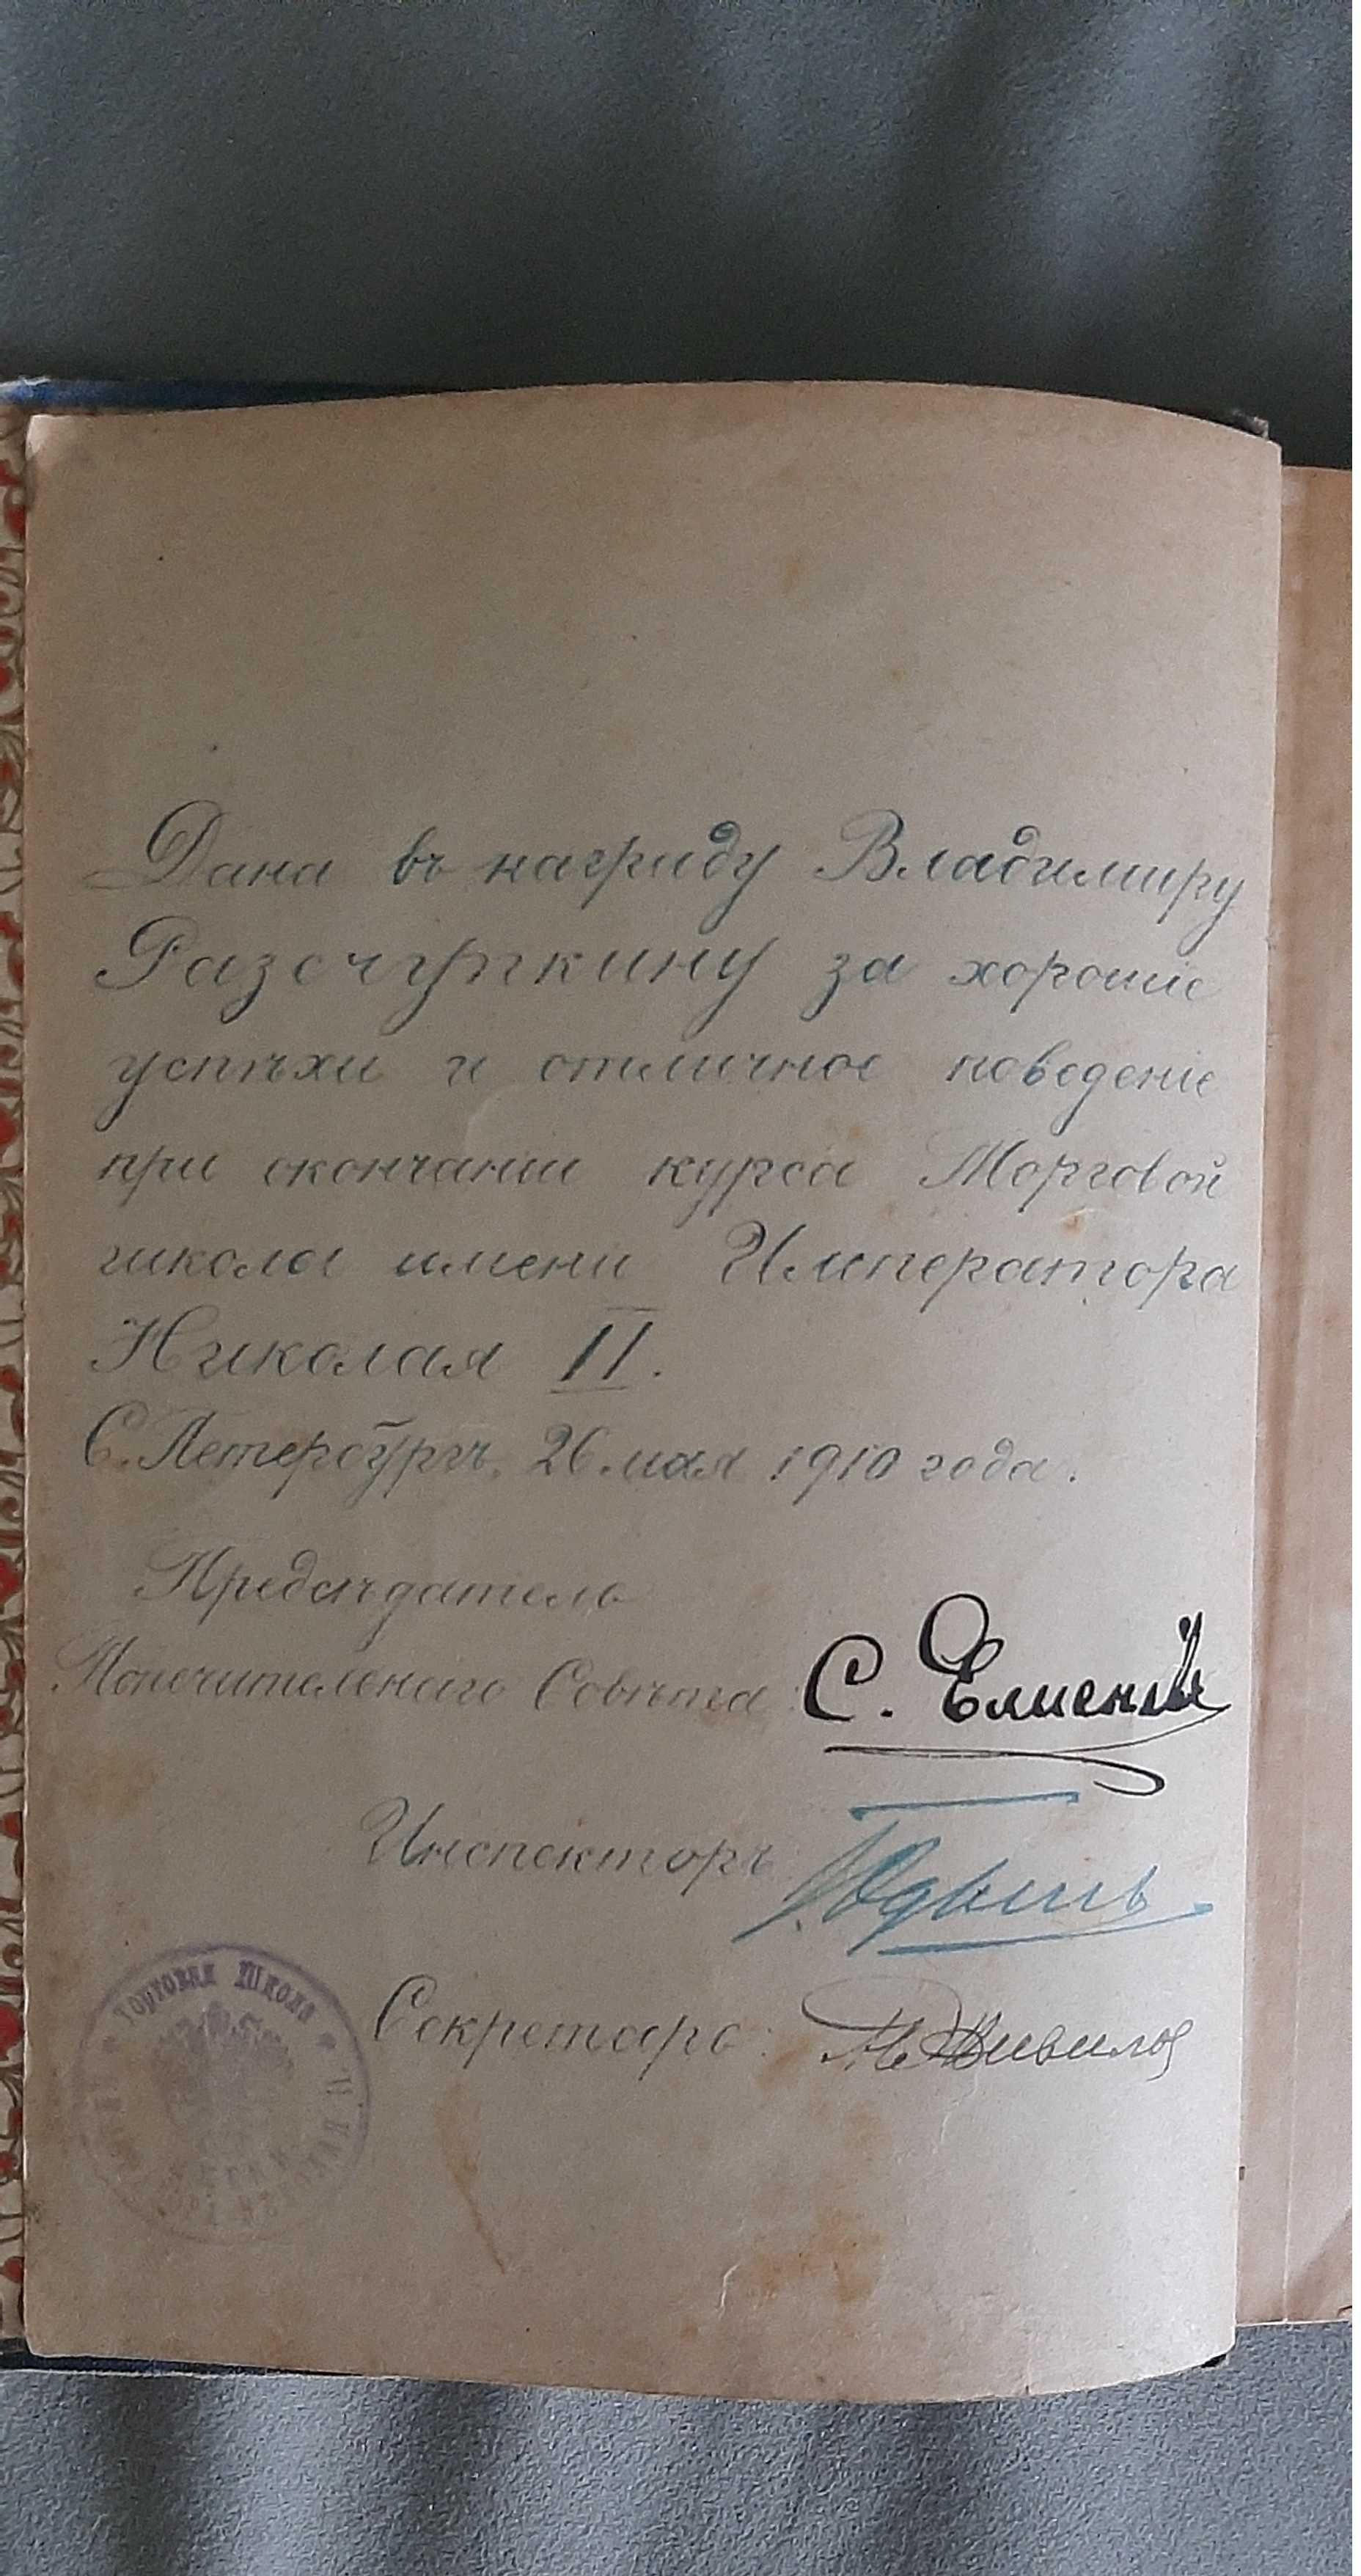 Дана въ награду Владимиру
Разсчупкину за хорошіе
успѣхи и отличное поведеніе
при окончаніи курса Торговой
школы имени Императора
Николая II.
С. Петербургъ, 26 мая 1910 года.
Предсѣдатель
Попечительнаго Совѣта: С. Елисеевъ
Инспекторъ
Секретарь:
Торговая Школа